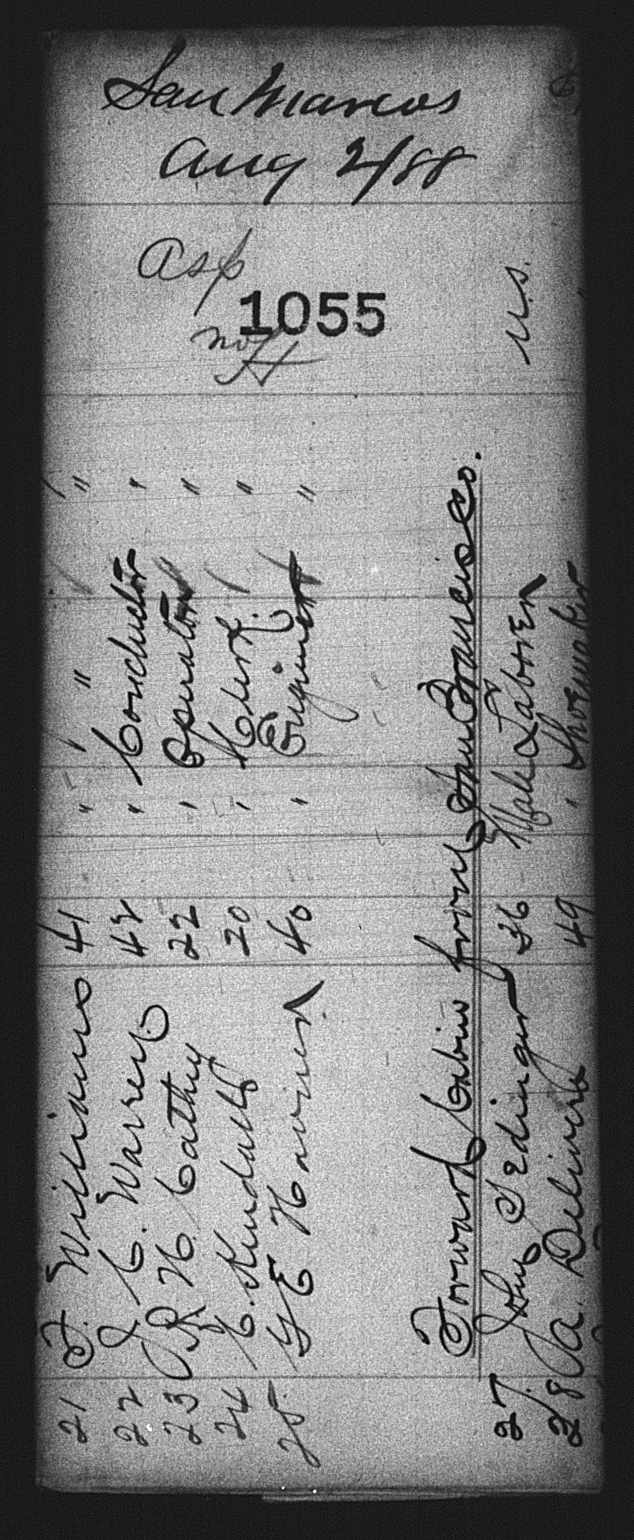 San Marcos
Aug 2/88
Asp
1055
no H
21 F. Williams 41 " " "
22 J. C. Warren 42 " Conductor "
23 R. H. Cathey 22 " Operator "
24 C. Kendall 20 " Clerk "
25 G E Haviner 40 " Engineer "
Forward Cabin from San Francisco.
27. John Sedinger 36 Male Laborer U.S.
28 A. Delivera 49 " Shoemaker